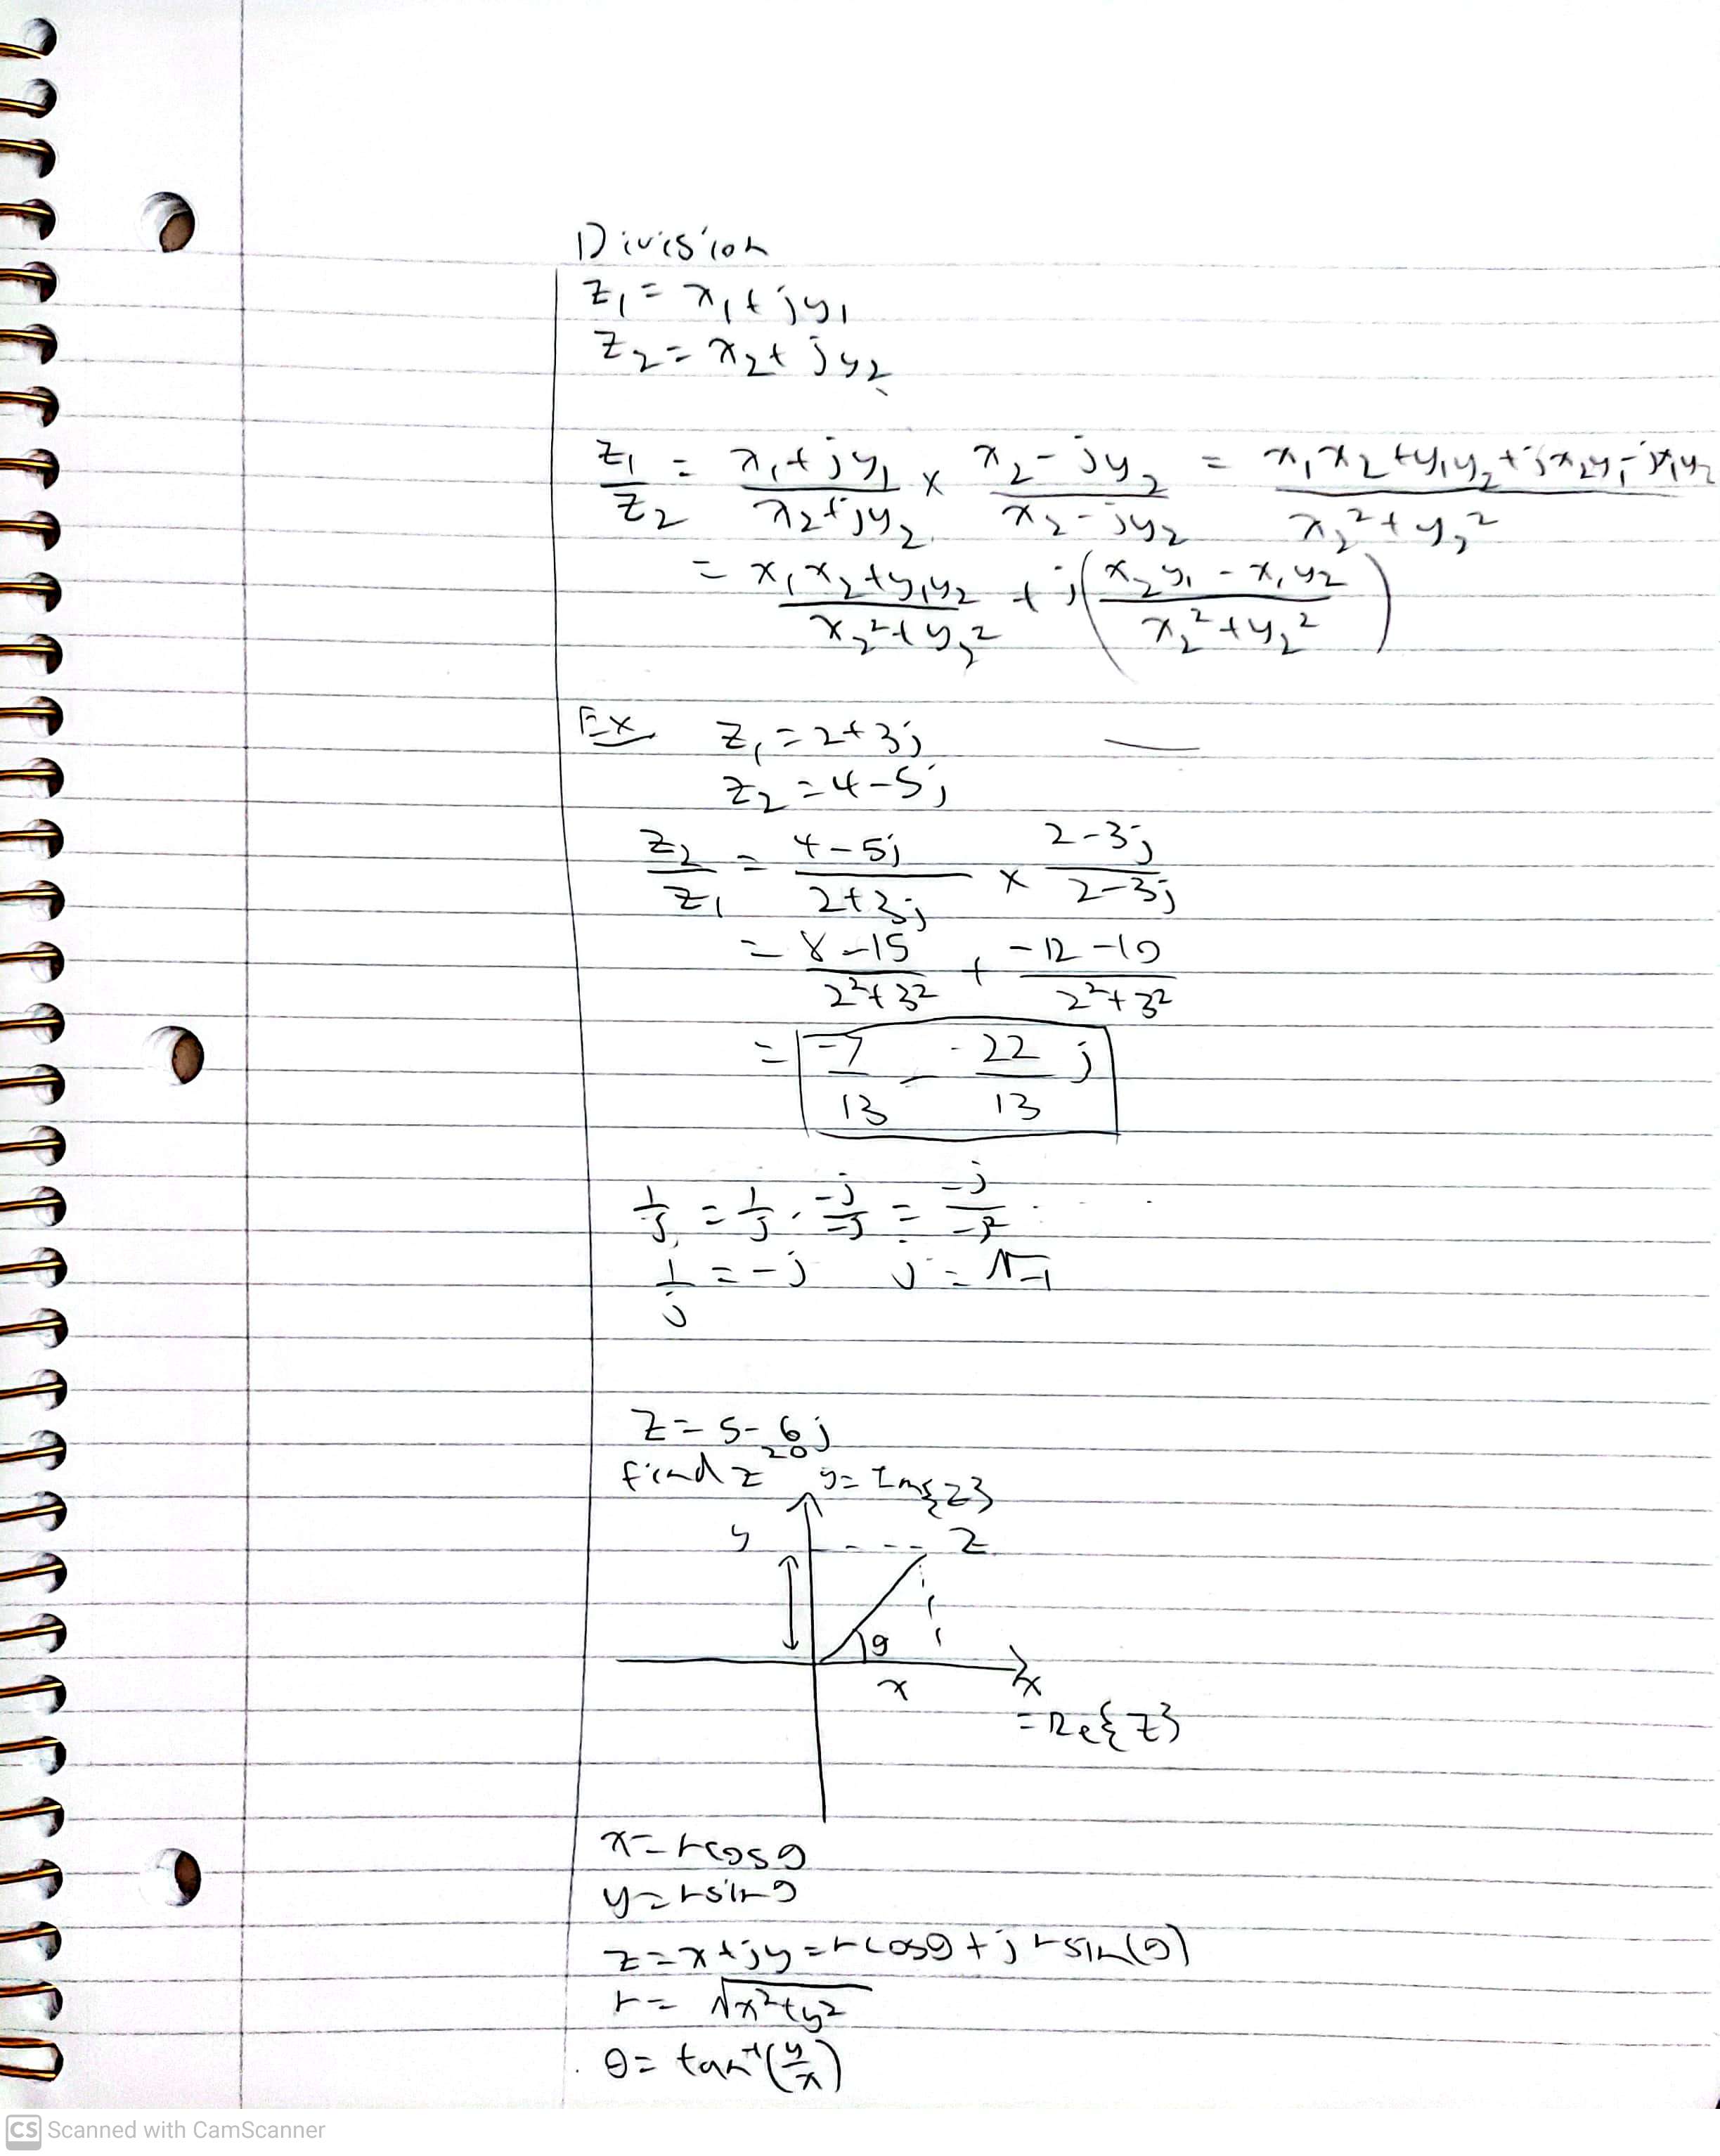 Division
z₁ = x₁ + jy₁
z₂ = x₂ + jy₂
z₁/z₂ = (x₁ + jy₁)/(x₂ + jy₂) × (x₂ - jy₂)/(x₂ - jy₂) = (x₁x₂ + y₁y₂ + jx₂y₁ - jx₁y₂)/(x₂² + y₂²)
= (x₁x₂ + y₁y₂)/(x₂² + y₂²) + j((x₂y₁ - x₁y₂)/(x₂² + y₂²))
Ex z₁ = 2 + 3j
z₂ = 4 - 5j
z₂/z₁ = (4 - 5j)/(2 + 3j) × (2 - 3j)/(2 - 3j)
= (8 - 15)/(2² + 3²) + (-12 - 10)/(2² + 3²)
= -7/13 - -22/13 j
1/j = 1/j · -j/-j = -j/-j²
1/j = -j j = √-1
z = 5 - 6j
find z²⁰
y = Im{z}
y z
θ
x x
= Re{z}
x = rcosθ
y = rsinθ
z = x + jy = rcosθ + jrsin(θ)
r = √x² + y²
θ = tan⁻¹(y/x)
CS Scanned with CamScanner